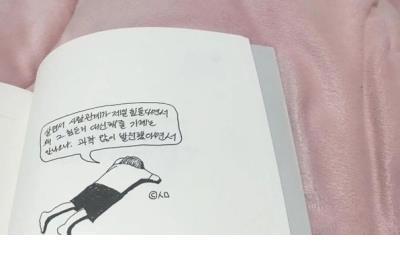 살면서 사람관계가 제일 힘들다면서
왜 그 힘든거 대신해줄 기계는
안나오나. 과학 많이 발전했다면서